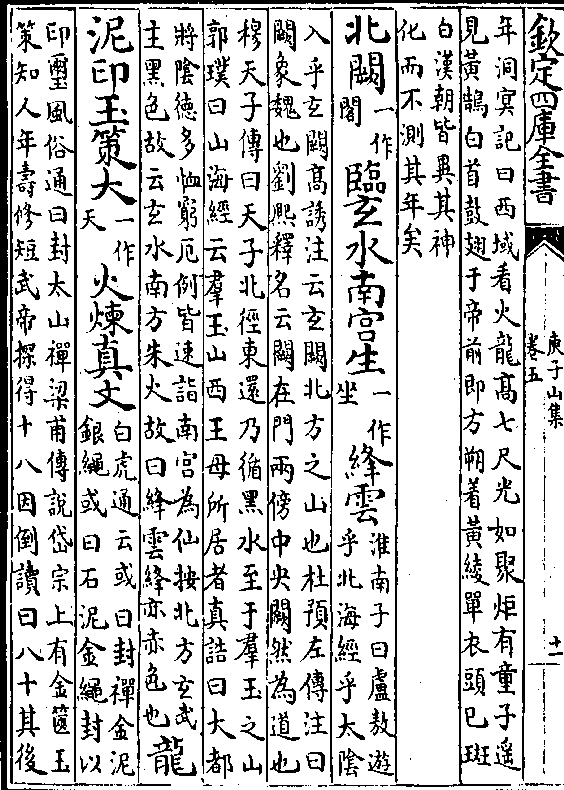 欽定四庫全書
庾子山集
卷五
十一
年洞㝠記曰西域看火龍高七尺光如聚炬有童子遥
見黄鵠白首鼓翅于帝前即方朔着黄綾單衣頭已斑
白漢朝皆異其神
化而不測其年矣
北闕一作閣臨玄水南宫生一作坐絳雲淮南子曰盧敖遊乎北海經乎大陰
入乎玄闕高誘注云玄闕北方之山也杜預左傳注曰
闕象魏也劉熙釋名云闕在門兩傍中央闕然為道也
穆天子傳曰天子北徑東還乃循黑水至于羣玉之山
郭璞曰山海經云羣玉山西王母所居者真誥曰大都
將陰徳多恤窮厄例皆速詣南宫為仙按北方玄武
主黑色故云玄水南方朱火故曰絳雲絳亦赤色也龍
泥印玉策大一作天火煉真文白虎通云或曰封禪金泥銀繩或曰石泥金繩封以
印璽風俗通曰封太山禪梁甫傳説岱宗上有金篋玉
策知人年壽修短武帝探得十八因倒讀曰八十其後